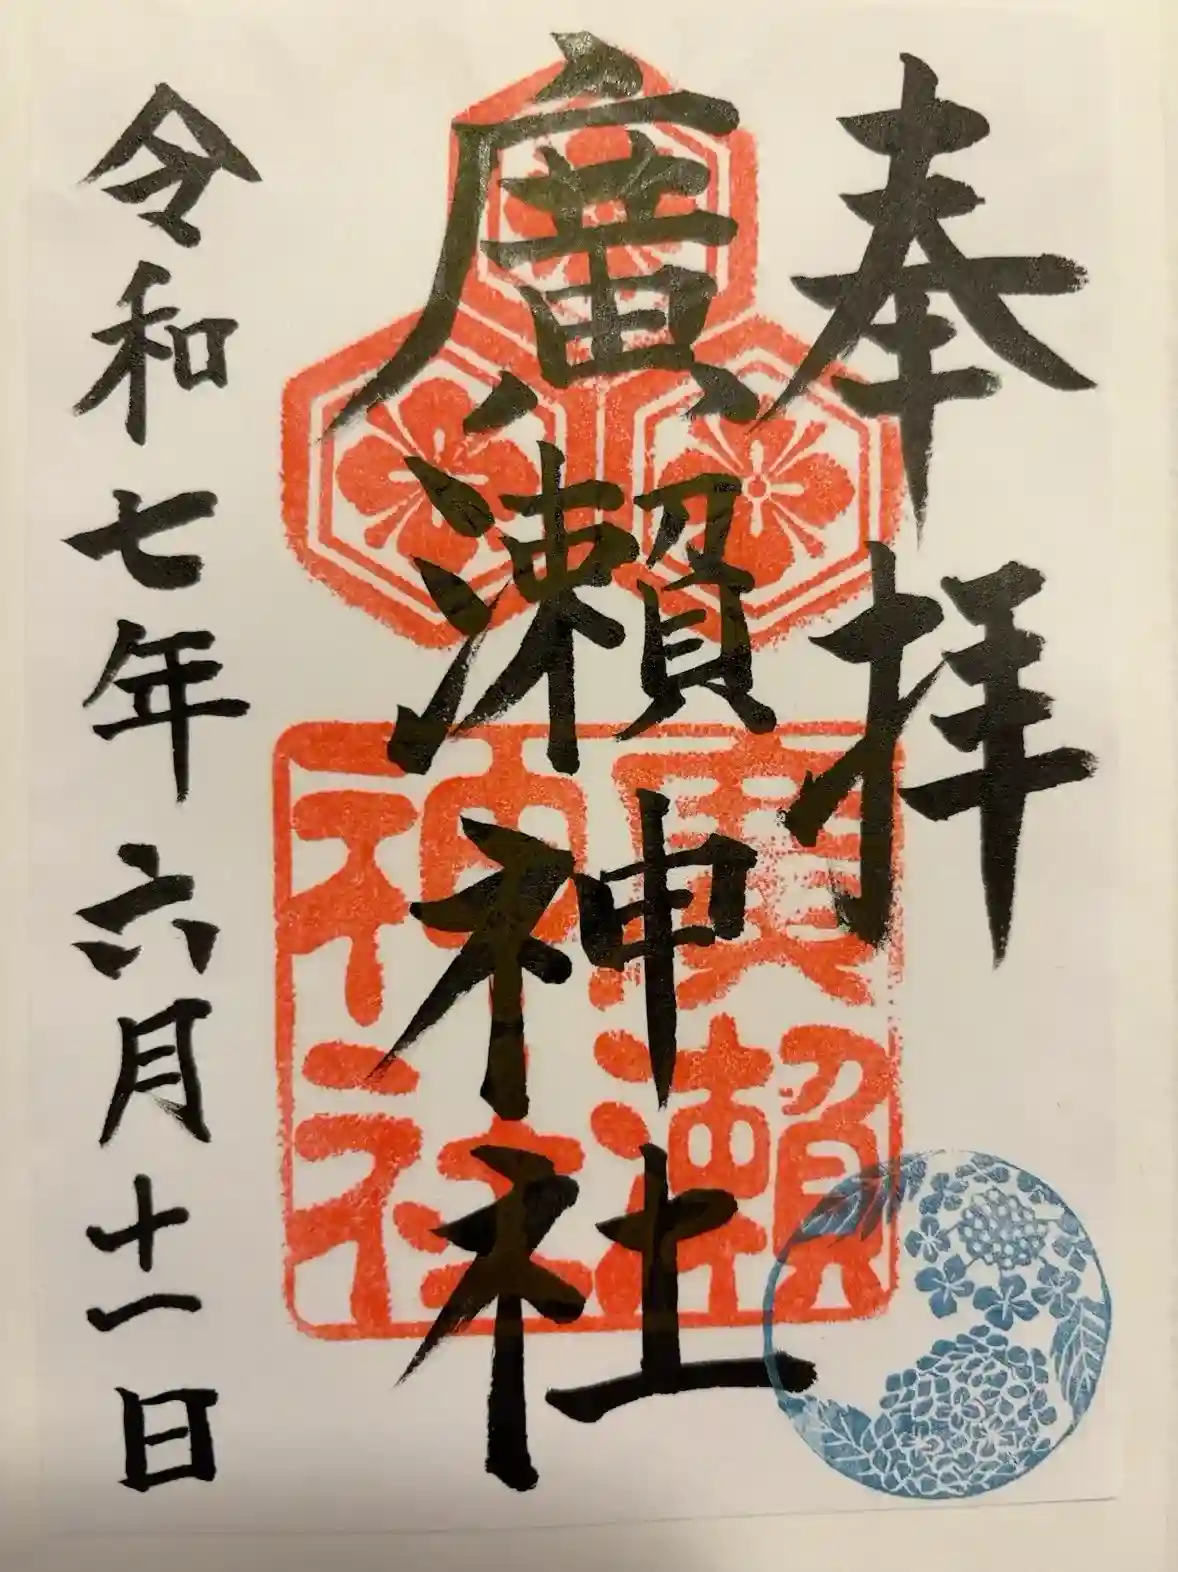 奉拝
廣瀬神社
廣瀬
神社
令和七年六月十一日